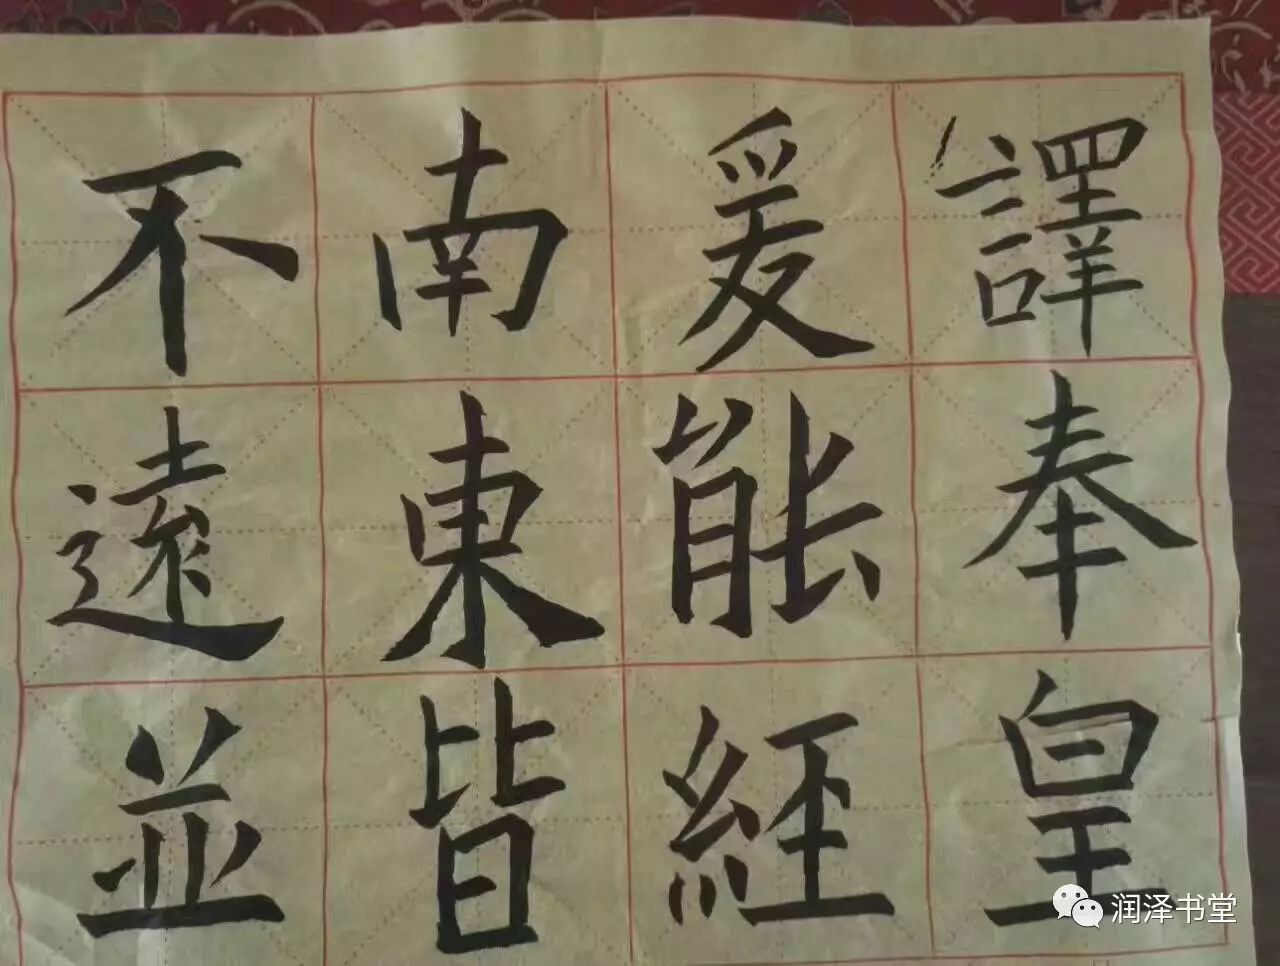 譯奉皇
爰能經
南東皆
不遠並
润泽书堂